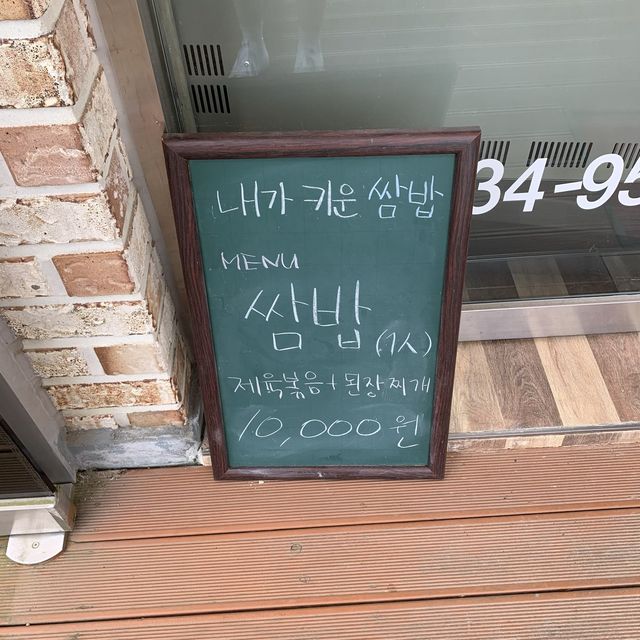 내가 키운 쌈밥
MENU
쌈밥 (1人)
제육볶음 + 된장찌개
10,000원
34-95